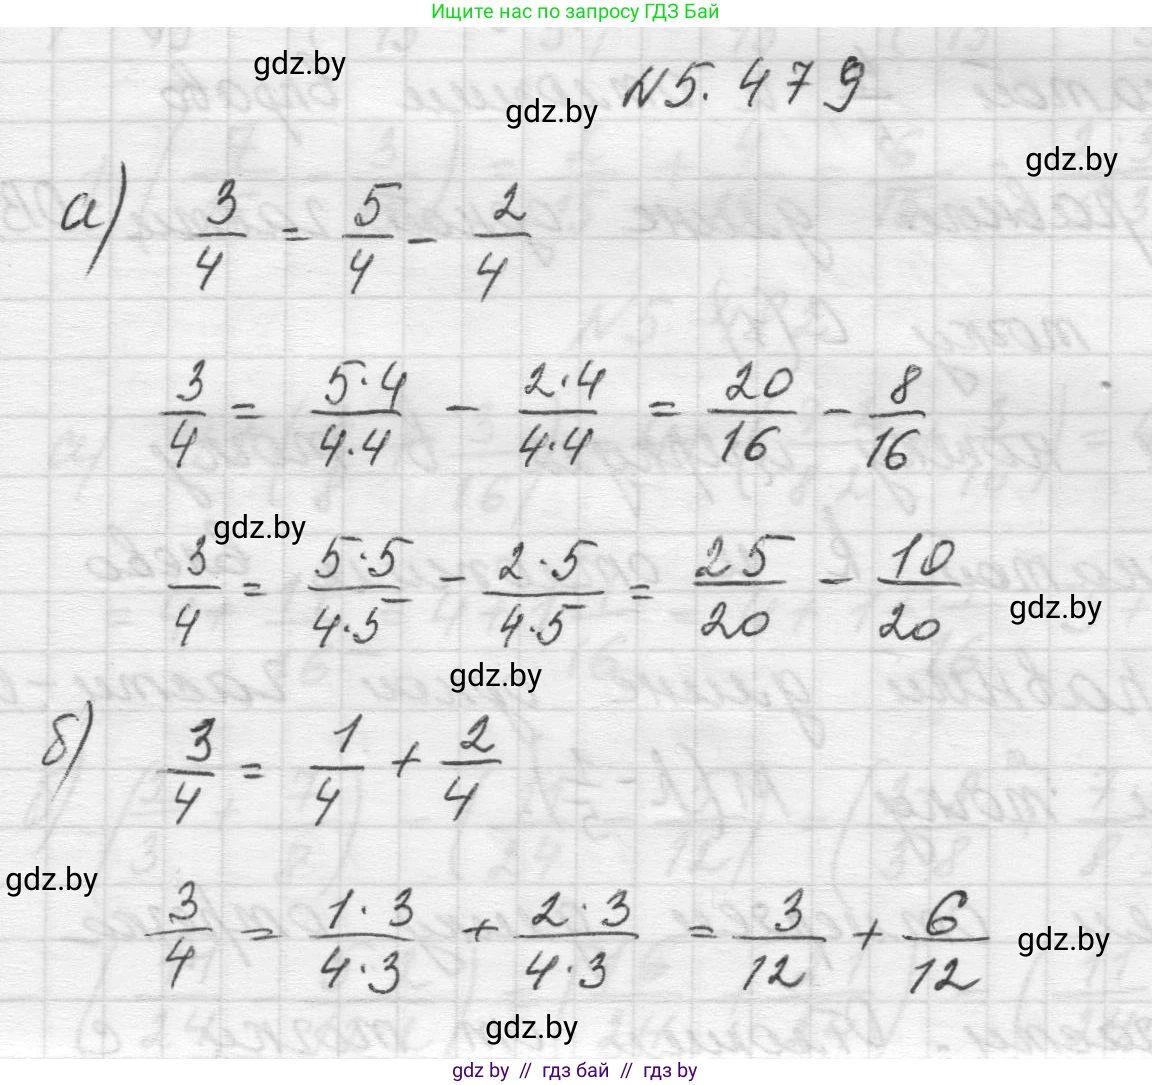 Ищите нас по запросу ГДЗ Бай
gdz.by
gdz.by
№5.479
gdz.by
а) 3/4 = 5/4 - 2/4
3/4 = 5·4/4·4 - 2·4/4·4 = 20/16 - 8/16
gdz.by
3/4 = 5·5/4·5 - 2·5/4·5 = 25/20 - 10/20
gdz.by
gdz.by
б) 3/4 = 1/4 + 2/4
gdz.by
3/4 = 1·3/4·3 + 2·3/4·3 = 3/12 + 6/12
gdz.by
gdz.by
gdz by // гдз бай // гдз by